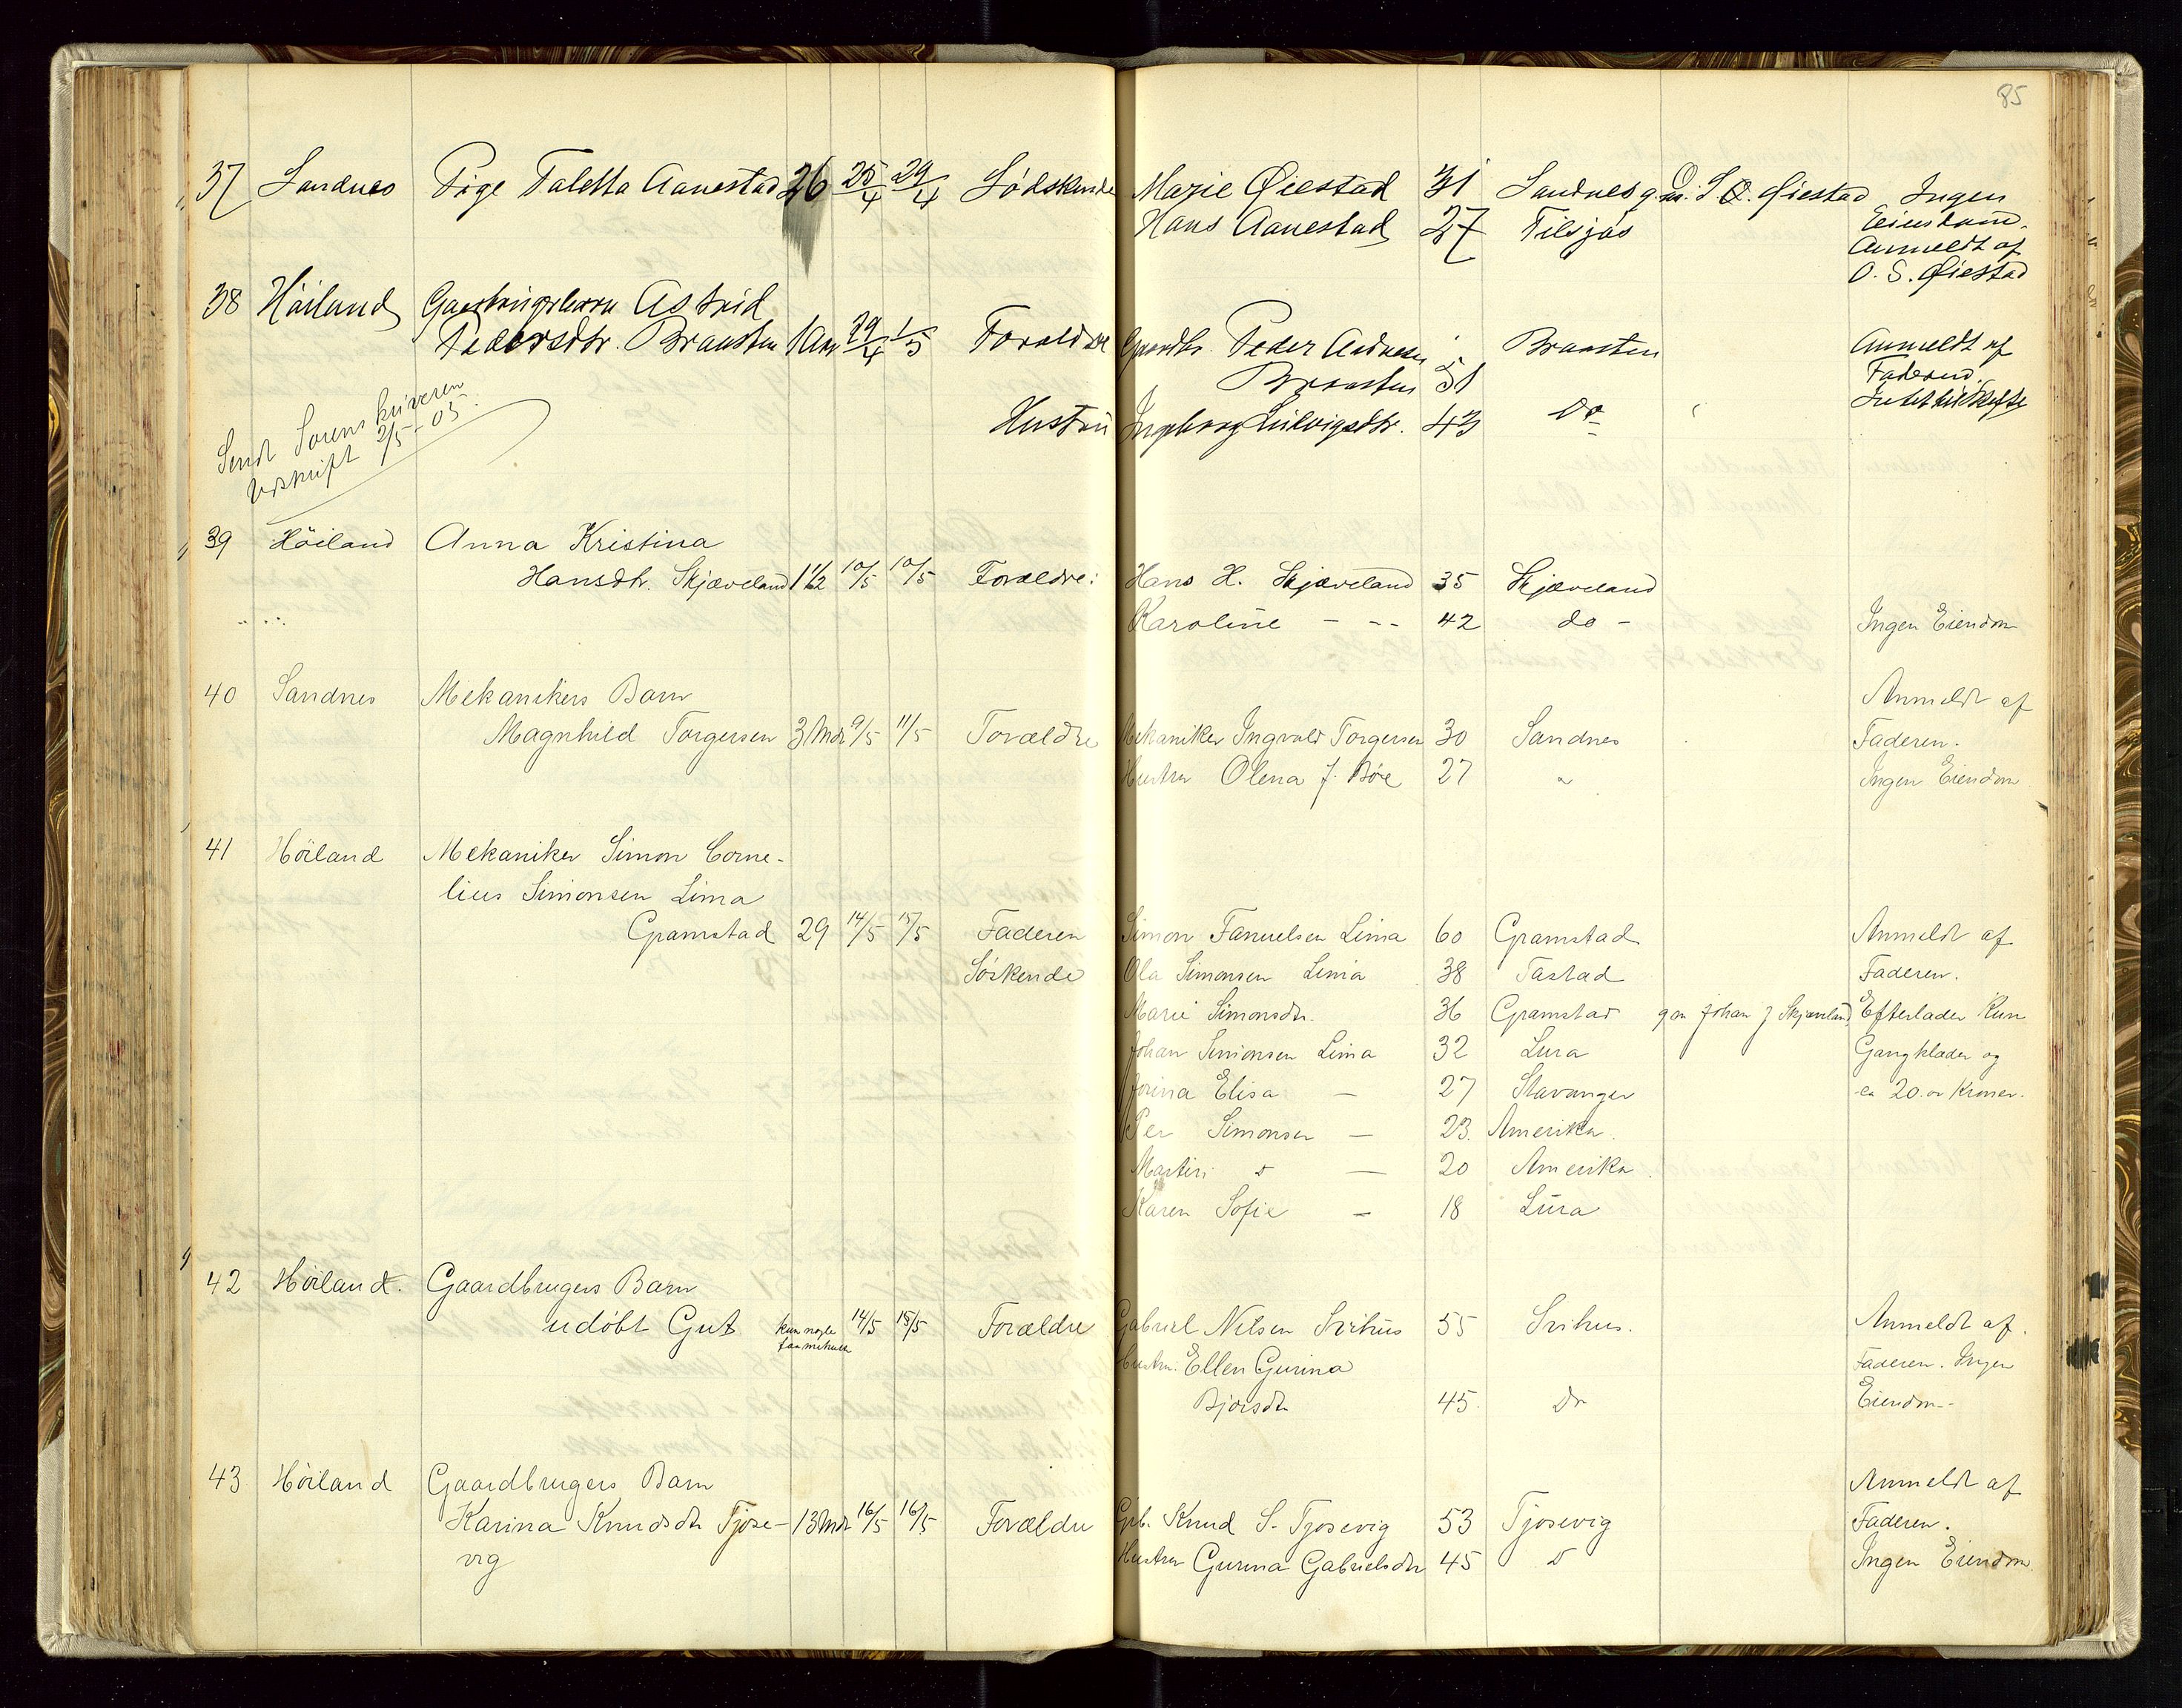 85
37 Sandnes Pige Taletta Aanestad 26 25/4 29/4 Södskende Marie Øiestad 31 Sandnes g.m. S. O. Øiestad Ingen
Hans Aanestad 27 Tilsjøs Eiendom.
Anmeldt af
O. S. Øiestad
38 Höiland Astrid
Pedersdtr. Braasten 1 Aar 29/4 1/5 Forældre Gaardbr. Peder Andreas Braasten Anmeldt af
Braasten 51 Faderen.
Hustru Ingeborg Ludvigsdtr. 43 Do
Sendt Sorenskriveren
Udskrift 2/5-05.
39 Höiland Anna Kristina
Hansdtr. Skjæveland 1 1/2 10/5 10/5 Forældre: Hans H. Skjæveland 35 Skjæveland
Karoline - -- 42 do - Ingen Eiendom
40 Sandnes Mekanikers Barn Anmeldt af
Magnhild Torgersen 3 Mdr 9/5 11/5 Forældre Mekaniker Ingvald Torgersen 30 Sandnes Faderen.
Hustru Olena J. Bøe 27 " Ingen Eiendom
41 Höiland Mekaniker Simon Corne-
lius Simonsen Lima
Gramstad 29 14/5 15/5 Faderen Simon Fanuelsen Lima 60 Gramstad Anmeldt af
Söskende Ola Simonsen Lima 38 Tastad Faderen.
Marie Simonsdtr. 36 Gramstad g m Johan J Skjæveland Efterlader kun
Johan Simonsen Lima 32 Lura Gangklæder og
Jorina Elisa — 27 Stavanger ca 20.00 Kroner.
Per Simonsen — 23. Amerika.
Martin do — 20 Amerika.
Karen Sofie — 18 Lura
42 Höiland. Gaardbrugers Barn
udöbt Gut kun nogle faa minuter 14/5 15/5 Forældre Gabriel Nilsen Svihus 55 Svihus. Anmeldt af.
Hustru: Ellen Gurina Faderen. Ingen
45. Do Eiendom--
43 Höiland Gaardbrugers Barn Anmeldt af
Karina Knudsdtr Tjose- 13 Mdr 16/5 16/5 Forældre Gb. Knud S. Tjosevig 53 Tjosevig Faderen.
vig Hustru Gurina Gabrielsdtr 45 D Ingen Eiendom.